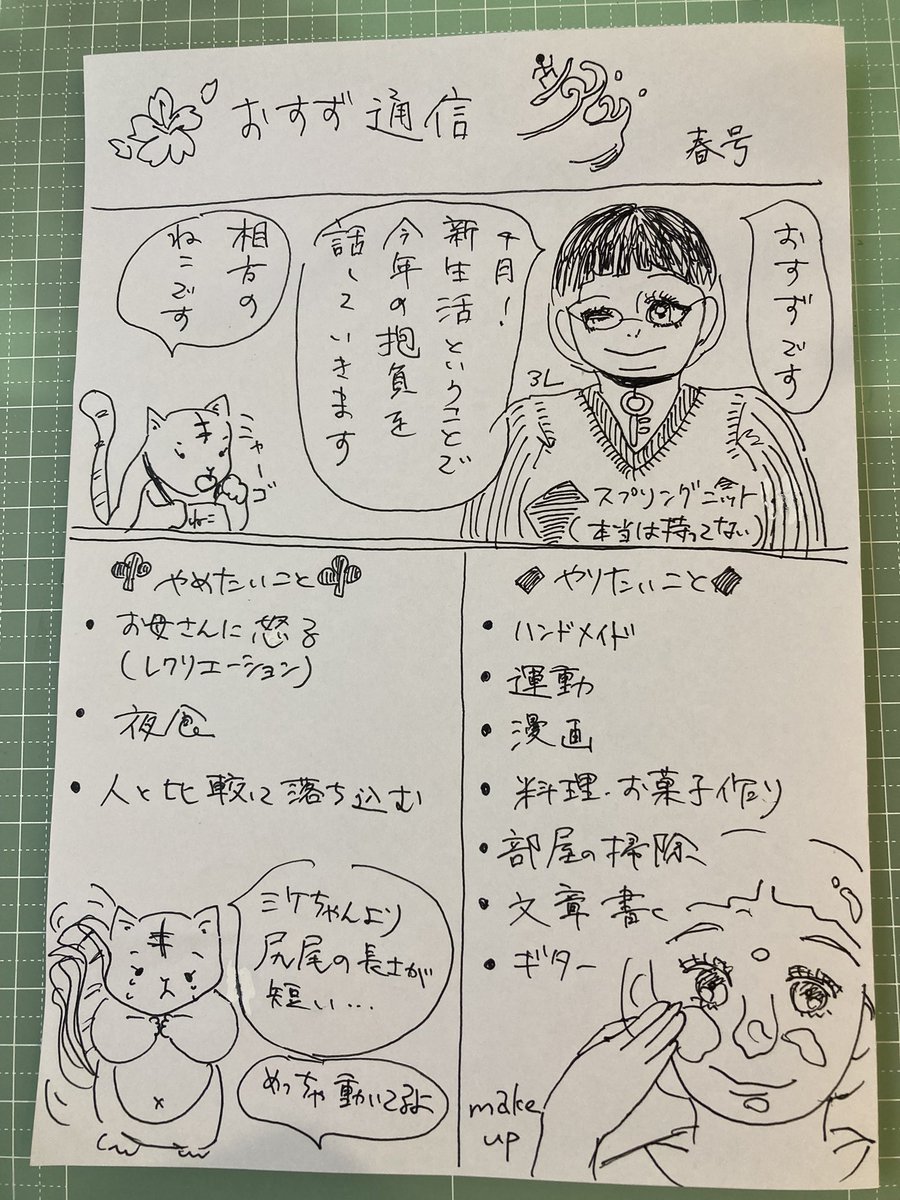 おすず通信
春号
おすずです
4月!
新生活ということで
今年の抱負を
話していきます
3L
スプリングニット
(本当は持ってない)
相方の
ねこです
ニャーゴ
ねこ
やめたいこと
・お母さんに怒る
(レクリエーション)
・夜食
・人と比較して落ち込む
ミケちゃんより
尻尾の長さが
短い…
めっちゃ動いてるよ
やりたいこと
・ハンドメイド
・運動
・漫画
・料理・お菓子作り
・部屋の掃除
・文章書く
・ギター
make
up